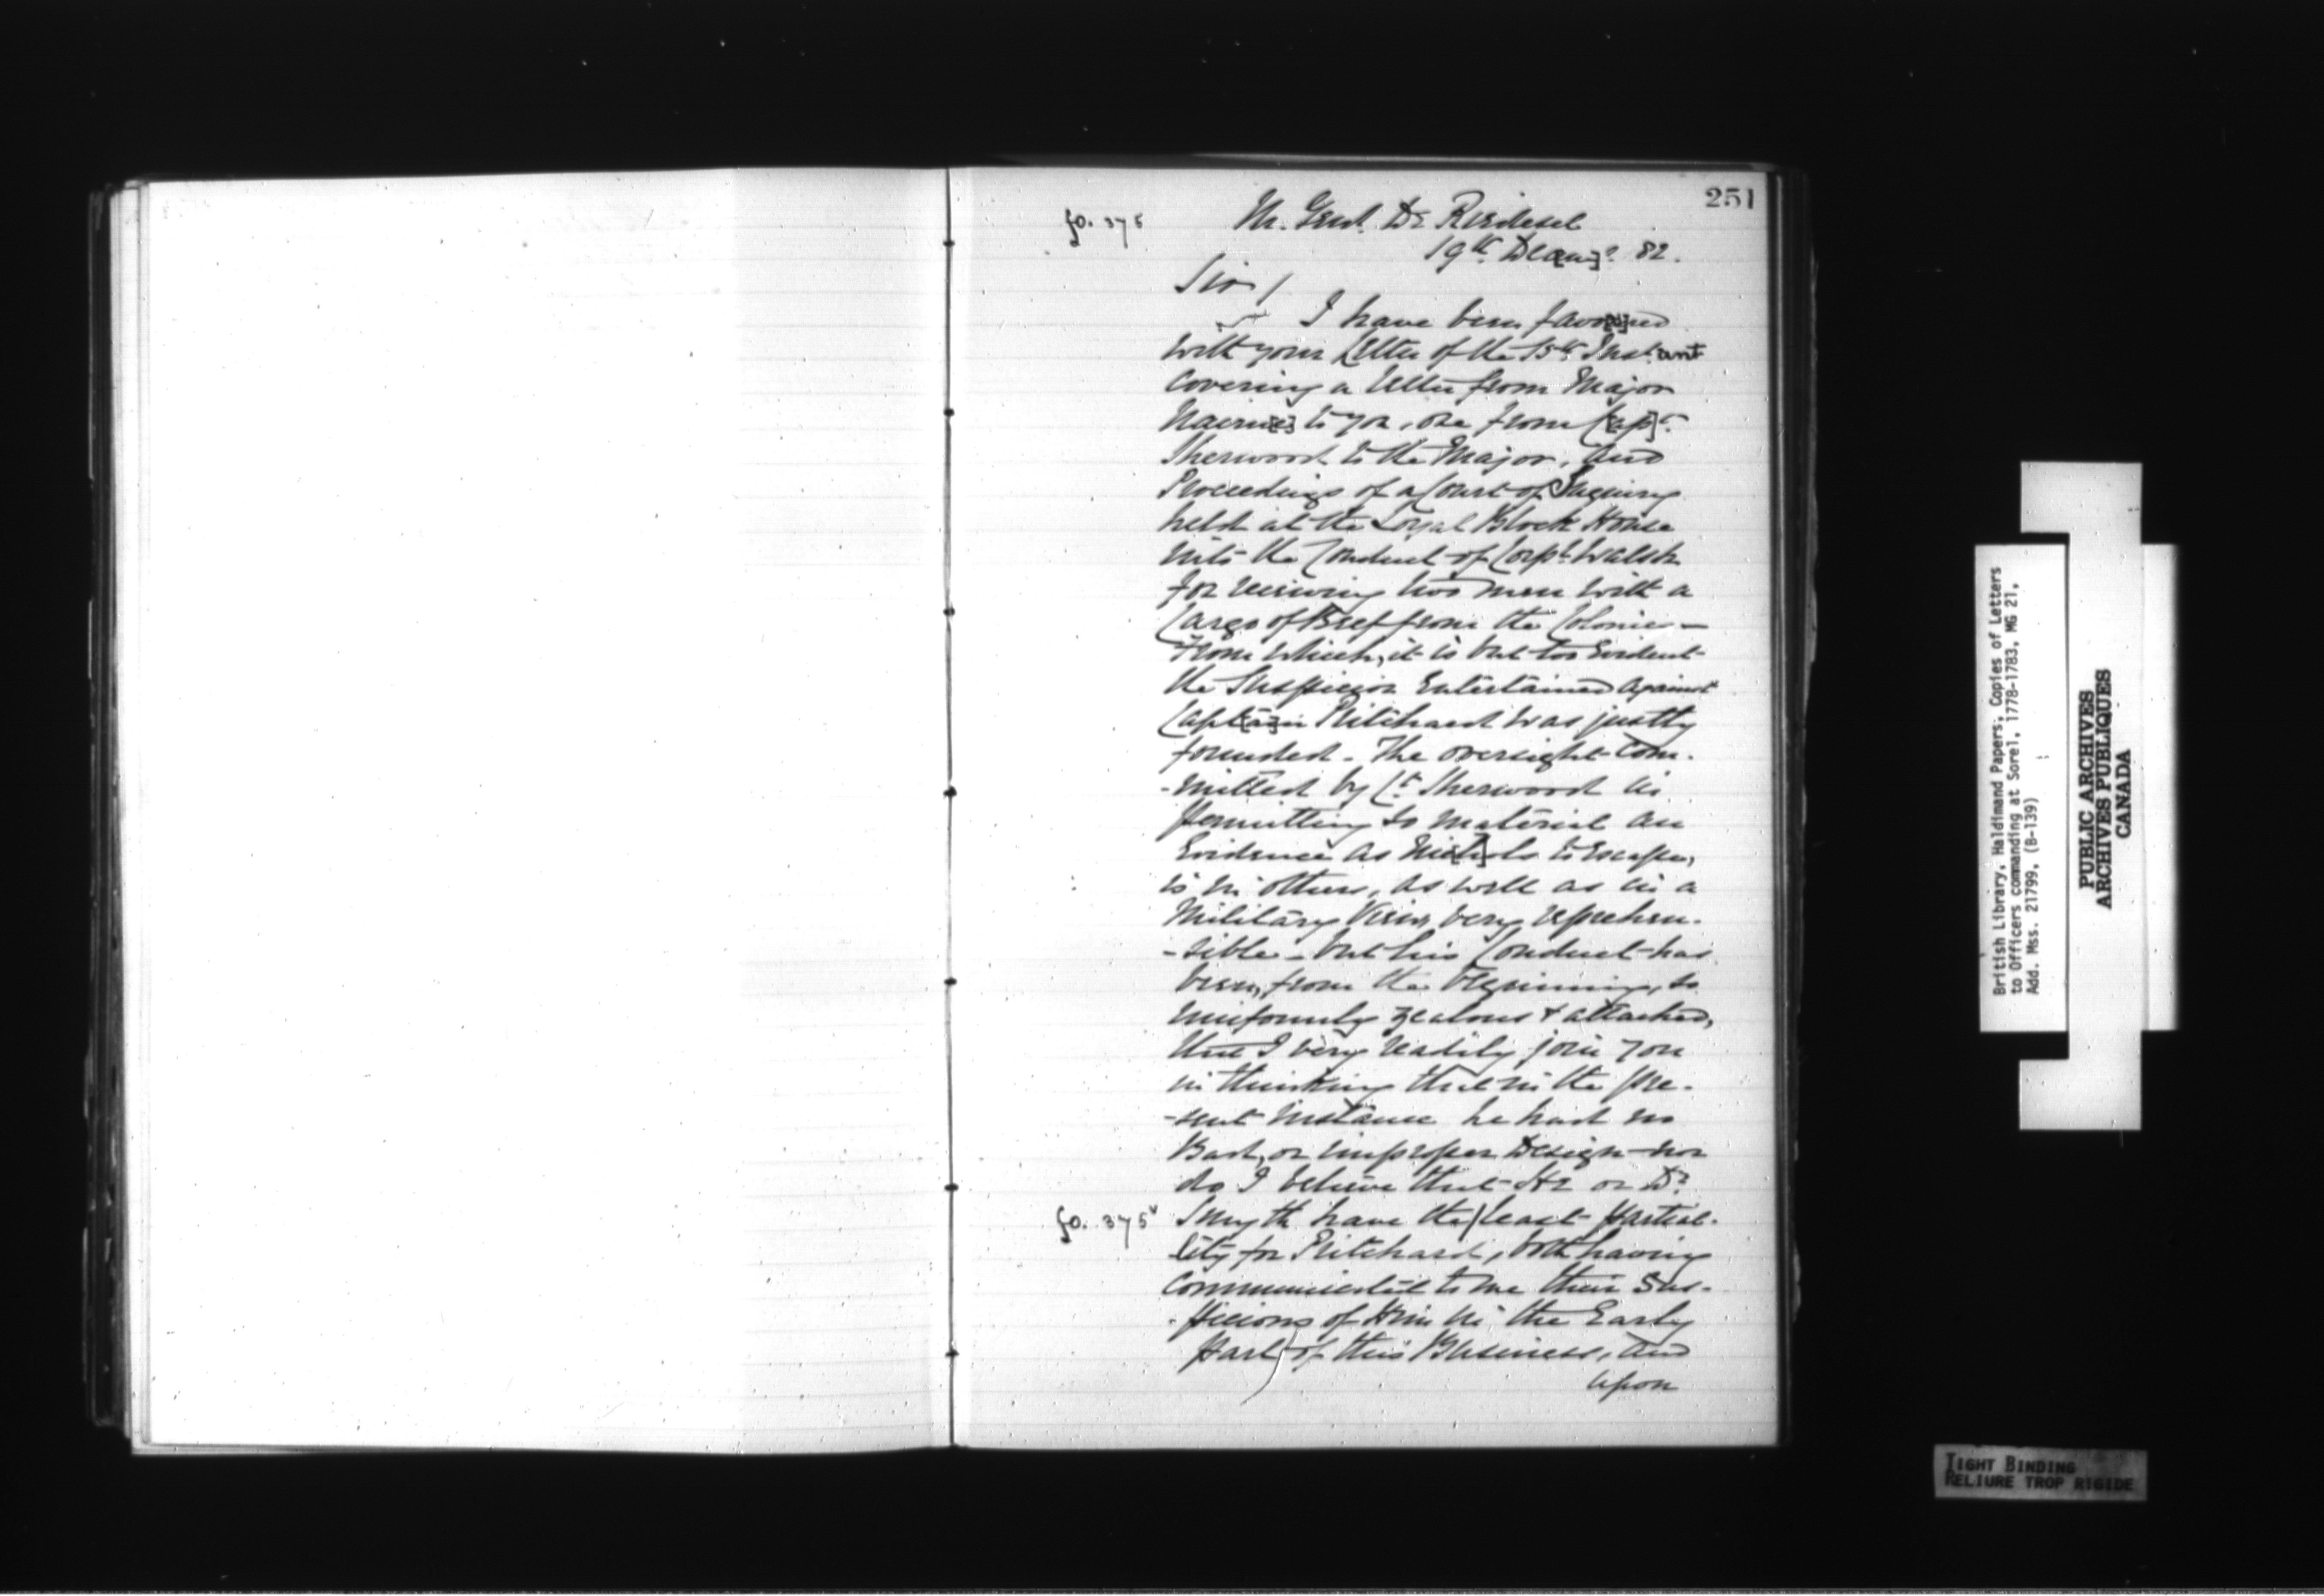 251
fo. 375
M. Genl. De Riedesel
19th Dec[em]r. 82.
Sir /
I have been favo[u]red
with your Letter of the 15th Inst.ant
Covering a Letter from Major
Nairn[e] to you, one from C[ap]t.
Sherwood to the Major, and
Proceedings of a Court of Inquiry
held at the Loyal Block House
into the Conduct of Corpl. Walsh
for receiving two men with a
Cargo of Beef from the Colonies —
From which, it is but too Evident
the Suspicion Entertained against
Capt[a]in Pritchard was justly
founded - The oversight Com-
-mitted by Ct. Sherwood in
permitting so material an
Evidence as Nic[h]ols to Escape,
is in others, as well as in a
Military View, very reprehen-
-sible - but his Conduct has
been, from the beginning, so
uniformly zealous & attached,
that I very readily join you
in thinking that in the pre-
-sent instance he had no
Bad, or improper Design nor
do I believe that He or Dr.
fo. 375v
Smyth have the | least partial-
lity for Pritchard, both having
Communicated to me their Sus-
-picions of Him in the Early
part of this Business, and
upon
British Library, Haldimand Papers, Copies of Letters
to Officers commanding at Sorel, 1778-1783, MG 21,
Add. Mss. 21799, (B-139)
PUBLIC ARCHIVES
ARCHIVES PUBLIQUES
CANADA
TIGHT BINDING
RELIURE TROP RIGIDE